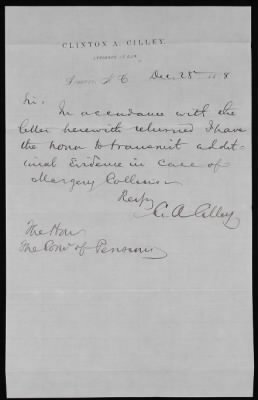 CLINTON A. CILLEY,
ATTORNEY AT LAW,
N. C. Dec. 28th 8
Sir.
In accordance with the
letter herewith returned I have
the honor to transmit addit-
ional Evidence in case of
Margery
Respy
C. A. Cilley
The Hon
The Comr of Pensions